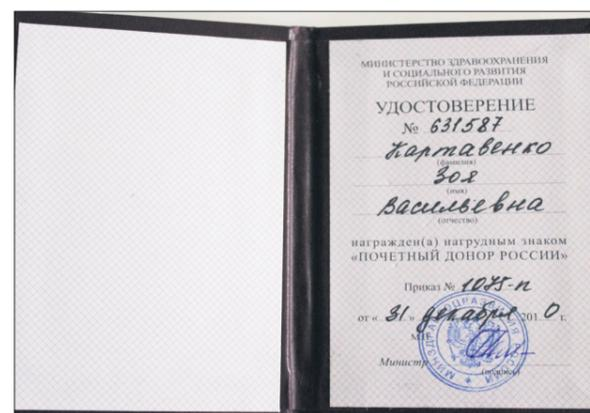 МИНИСТЕРСТВО ЗДРАВООХРАНЕНИЯ
И СОЦИАЛЬНОГО РАЗВИТИЯ
РОССИЙСКОЙ ФЕДЕРАЦИИ
УДОСТОВЕРЕНИЕ
№ 631587
Картавенко
(фамилия)
Зоя
(имя)
Васильевна
(отчество)
награжден(а) нагрудным знаком
«ПОЧЕТНЫЙ ДОНОР РОССИИ»
Приказ № 1075-п
от « 31 » декабря 2010 г.
М.П.
Министр
(подпись)
МИНЗДРАВСОЦРАЗВИТИЯ РОССИИ